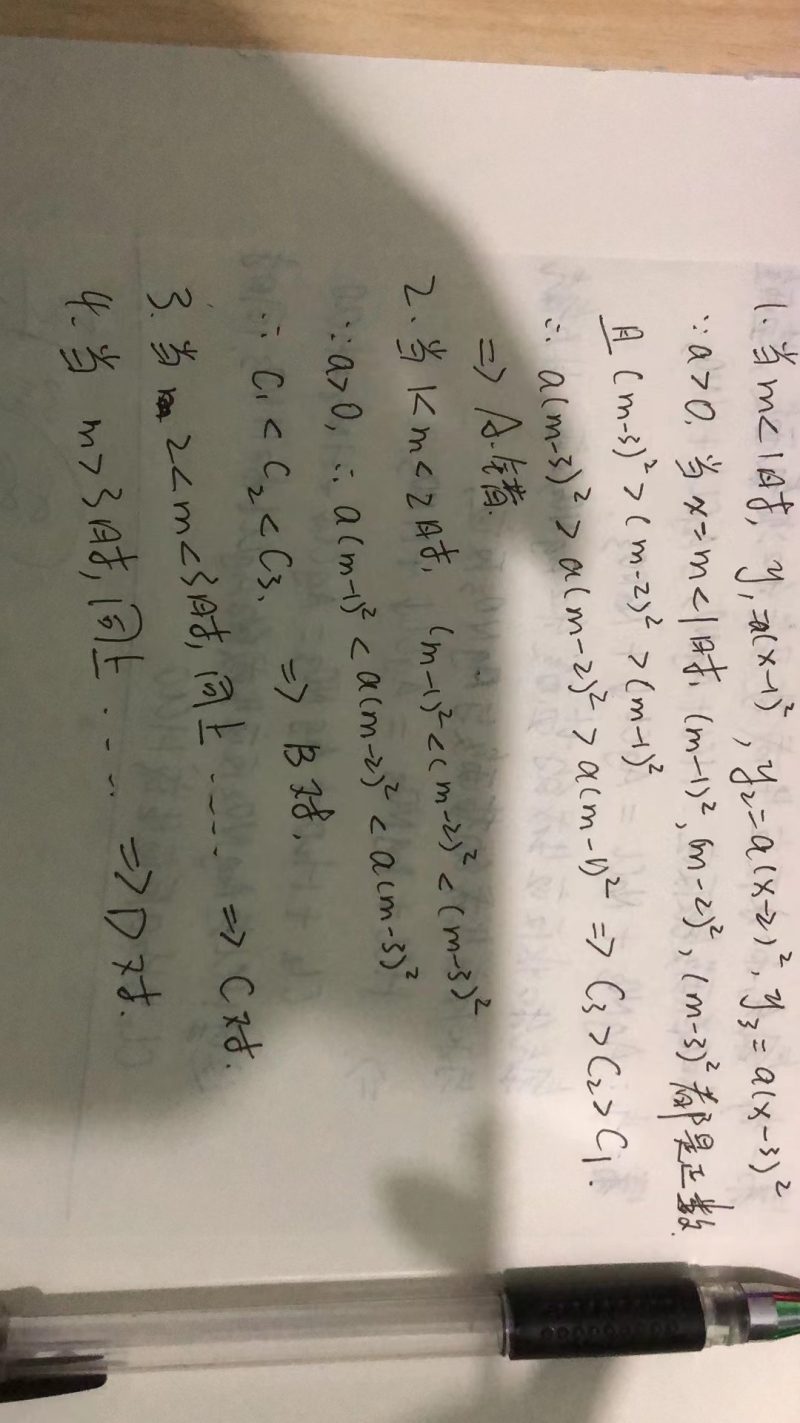 1. 当m<1时, y₁=a(x-1)², y₂=a(x-2)², y₃=a(x-3)²
∵a>0. 当x=m<1时, (m-1)², (m-2)², (m-3)²都是正数.
且(m-3)²>(m-2)²>(m-1)²
∴ a(m-3)²>a(m-2)²>a(m-1)² ⇒ C₃>C₂>C₁.
⇒ A.错.
2. 当1<m<2时, (m-1)²<(m-2)²<(m-3)²
∵a>0, ∴ a(m-1)²<a(m-2)²<a(m-3)²
∴ C₁<C₂<C₃, ⇒ B对.
3. 当2<m<3时, 同上.... ⇒ C对.
4. 当 m>3时, 同上.... ⇒D对.